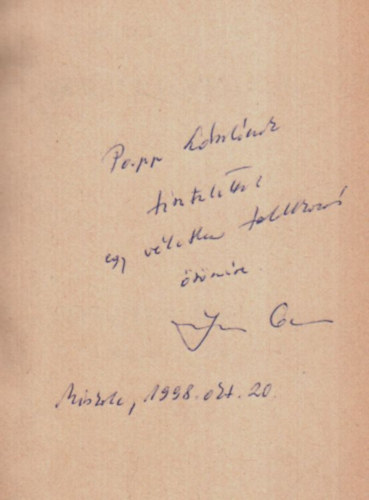 Papp Lászlónak
tisztelettel
egy véletlen találkozás
örömére
Miskolc, 1998. okt. 20.